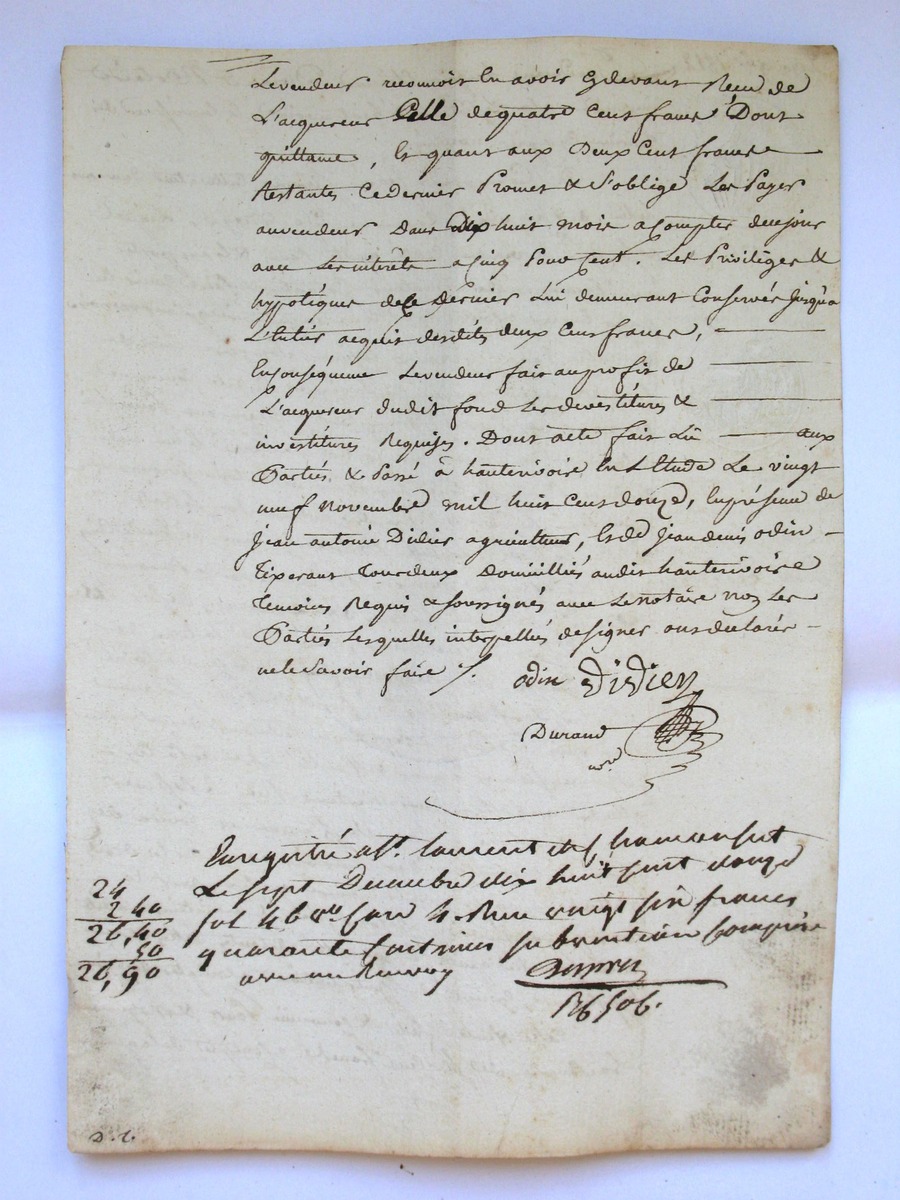 Le vendeur reconnoit en avoir cy devant Reçu de
L'acquereur Celle de quatre Cent francs Dont
quittance, Et quant aux Deux Cent francs
Restants Ce dernier Promet & S'oblige Les Payer
au vendeur Dans Dix huit mois a Compter de ce jour
avec Les intérêts a Cinq Pour Cent. Les Privilèges &
hypotèques de Ce Dernier Lui demeurant Conservés jusqu'a
L'entier acquit desdits deux Cent francs,
En Conséquence Le vendeur fait au profit de
L'acquereur dudit fond Les devestitures &
investitures Requises. Dont acte fait Lu aux
Parties & Passé à hauterivoire En L'Etude Le vingt
neuf Novembre mil huit Cent douze, En présence de
jean antoine Didier agriculteur, Et de jean denis odin
Tixerant Tous deux Domiciliés audit hauterivoire
Temoins Requis & soussignés avec Le notaire non Les
Parties Lesquelles interpellées de signer ont déclaré
ne le Savoir faire /.
odin Didier
Durand
nore
Enregistré a St. Laurent de Chamousset
Le sept Decembre dix huit cent douze
fol 46 vo Case 4. Reçu vingt six francs
quarante Centimes subvention Comprise
avec un Renvoy
24
2 40
26,40
50
26,90
D. L.